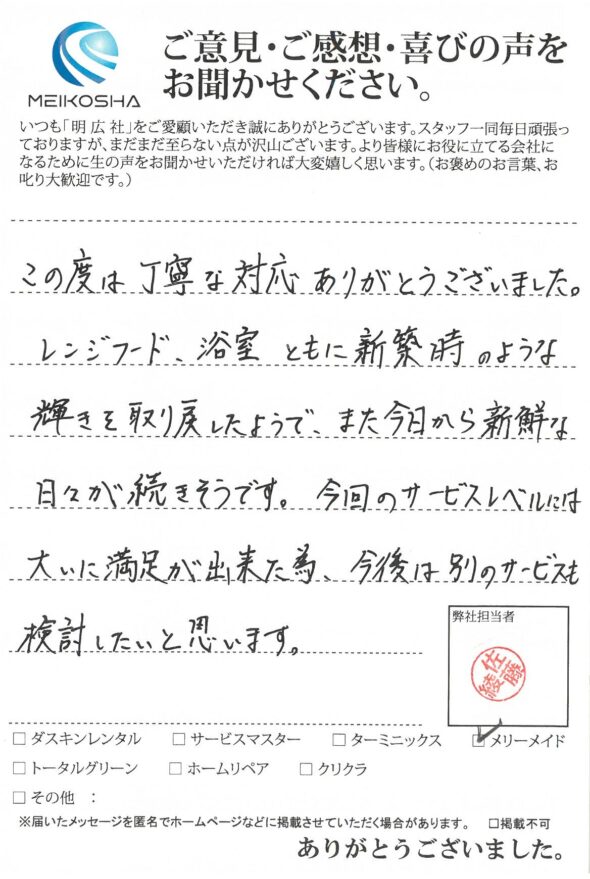 MEIKOSHA
ご意見・ご感想・喜びの声を
お聞かせください。
いつも「明広社」をご愛顧いただき誠にありがとうございます。スタッフ一同毎日頑張っ
ておりますが、まだまだ至らない点が沢山ございます。より皆様にお役に立てる会社に
なるために生の声をお聞かせいただければ大変嬉しく思います。（お褒めのお言葉、お
叱り大歓迎です。）
この度は丁寧な対応ありがとうございました。
レンジフード、浴室ともに新築時のような
輝きを取り戻したようで、また今日から新鮮な
日々が続きそうです。今回のサービスレベルには
大いに満足が出来た為、今後は別のサービスも
検討したいと思います。
弊社担当者
佐藤
綾
□ダスキンレンタル □サービスマスター □ターミニックス ☑メリーメイド
□トータルグリーン □ホームリペア □クリクラ
□その他 ：
※届いたメッセージを匿名でホームページなどに掲載させていただく場合があります。 □掲載不可
ありがとうございました。